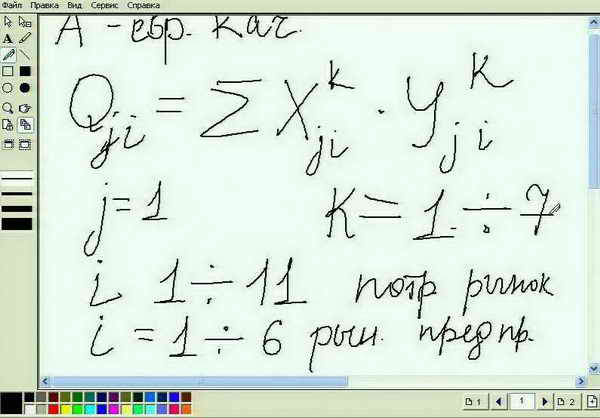 Файл Правка Вид Сервис Справка
А - евр. кач.
Qji = Σ Xji^k · Yji^k
j = 1 K = 1 ÷ 7
i 1 ÷ 11 потр рынок
i = 1 ÷ 6 рын. предпр.
1 1 2